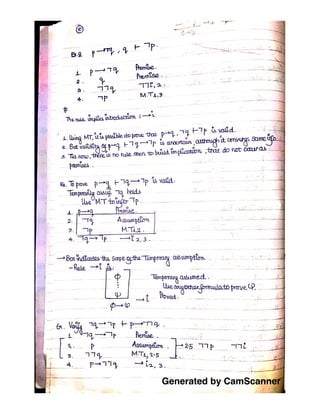 Eg.2 p→¬q , q ⊢ ¬p.
1. p→¬q Premise.
2. q Premise.
3. ¬¬q ¬¬i, 2.
4. ¬p M.T 1,3
The rule implies introduction : →i
1. Using MT, it is possible to prove that p→q, ¬q ⊢ ¬p is valid.
2. But validity of p→q ⊢ ¬q→¬p is uncertain, although it conveys same
3. Till now, there is no rule seen to build implication, that do not occur as
premises.
Eg. To prove p→q ⊢ ¬q→¬p is valid.
Temporarily assume ¬q holds
Use MT to infer ¬p.
1. p→q Premise
2. ¬q Assumption
3. ¬p M.T 1,2.
4. ¬q→¬p →i 2,3.
→ Box indicates the scope of the Temporary assumption.
- Rule →i is:
ϕ Temporary assumed.
⋮ Use any other formula to prove ψ.
ψ Proved.
ϕ→ψ →i
Eg. Verify ¬q→¬p ⊢ p→¬¬q.
1 ¬q→¬p Premise.
2. p Assumption.
3. ¬¬q M.T
4. p→¬¬q →i 2,3.
Generated by CamScanner